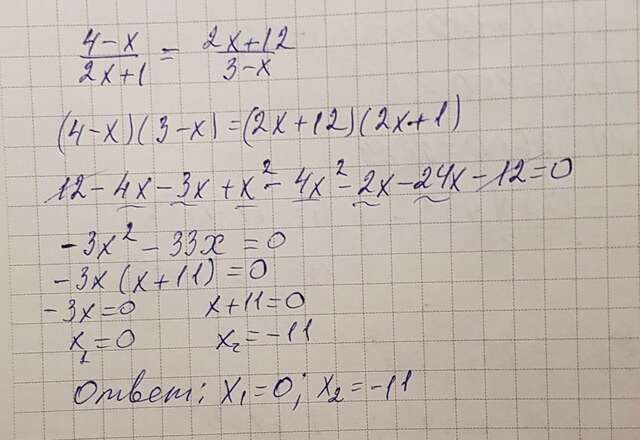 4-x/2x+1 = 2x+12/3-x
(4-x)(3-x)=(2x+12)(2x+1)
12-4x-3x+x²-4x²-2x-24x-12=0
-3x²-33x=0
-3x(x+11)=0
-3x=0 x+11=0
x₁=0 x₂=-11
Ответ: x₁=0; x₂=-11